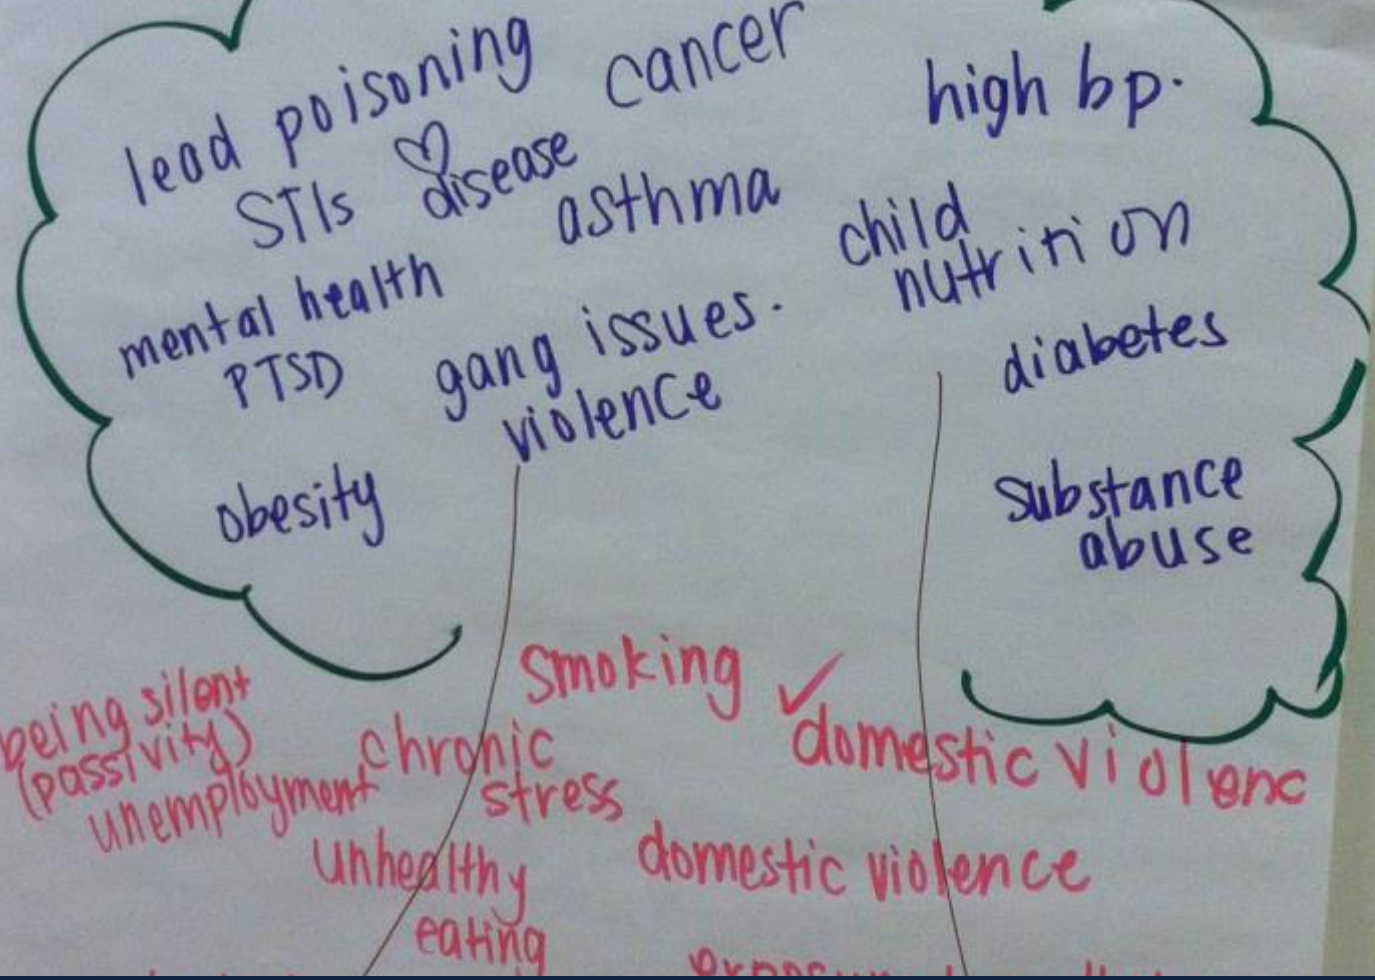 lead poisoning
cancer
high bp.
STIs
♡
disease
asthma
child
nutrition
mental health
PTSD
gang issues.
violence
diabetes
obesity
substance
abuse
smoking
✓
being silent
(passivity)
unemployment
chronic
stress
domestic violenc
unhealthy
eating
domestic violence